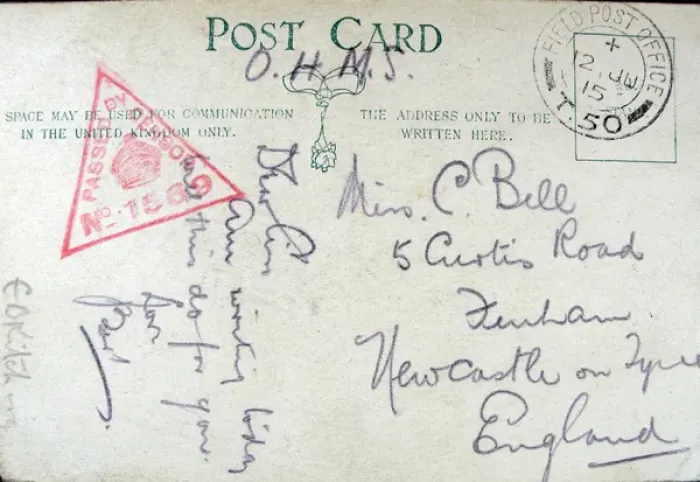 POST CARD
O.H.M.S.
SPACE MAY BE USED FOR COMMUNICATION
IN THE UNITED KINGDOM ONLY.
THE ADDRESS ONLY TO BE
WRITTEN HERE.
FIELD POST OFFICE
12 JU
15
T.50
PASSED BY CENSOR
No. 1562
Miss. C. Bell
5 Curtis Road
Fenham
Newcastle on Tyne
England
Dear
Am writing today
this do for you.